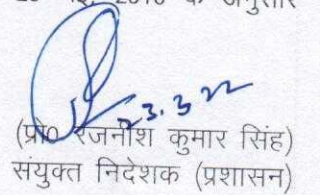 2016 के अनुसार
23.3.22
(प्रो० रजनीश कुमार सिंह)
संयुक्त निदेशक (प्रशासन)